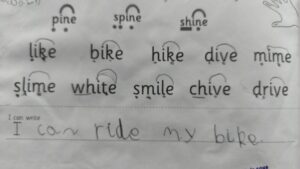 pine spine shine
like bike hike dive mime
slime white smile chive drive
I can write
I can ride my bike.